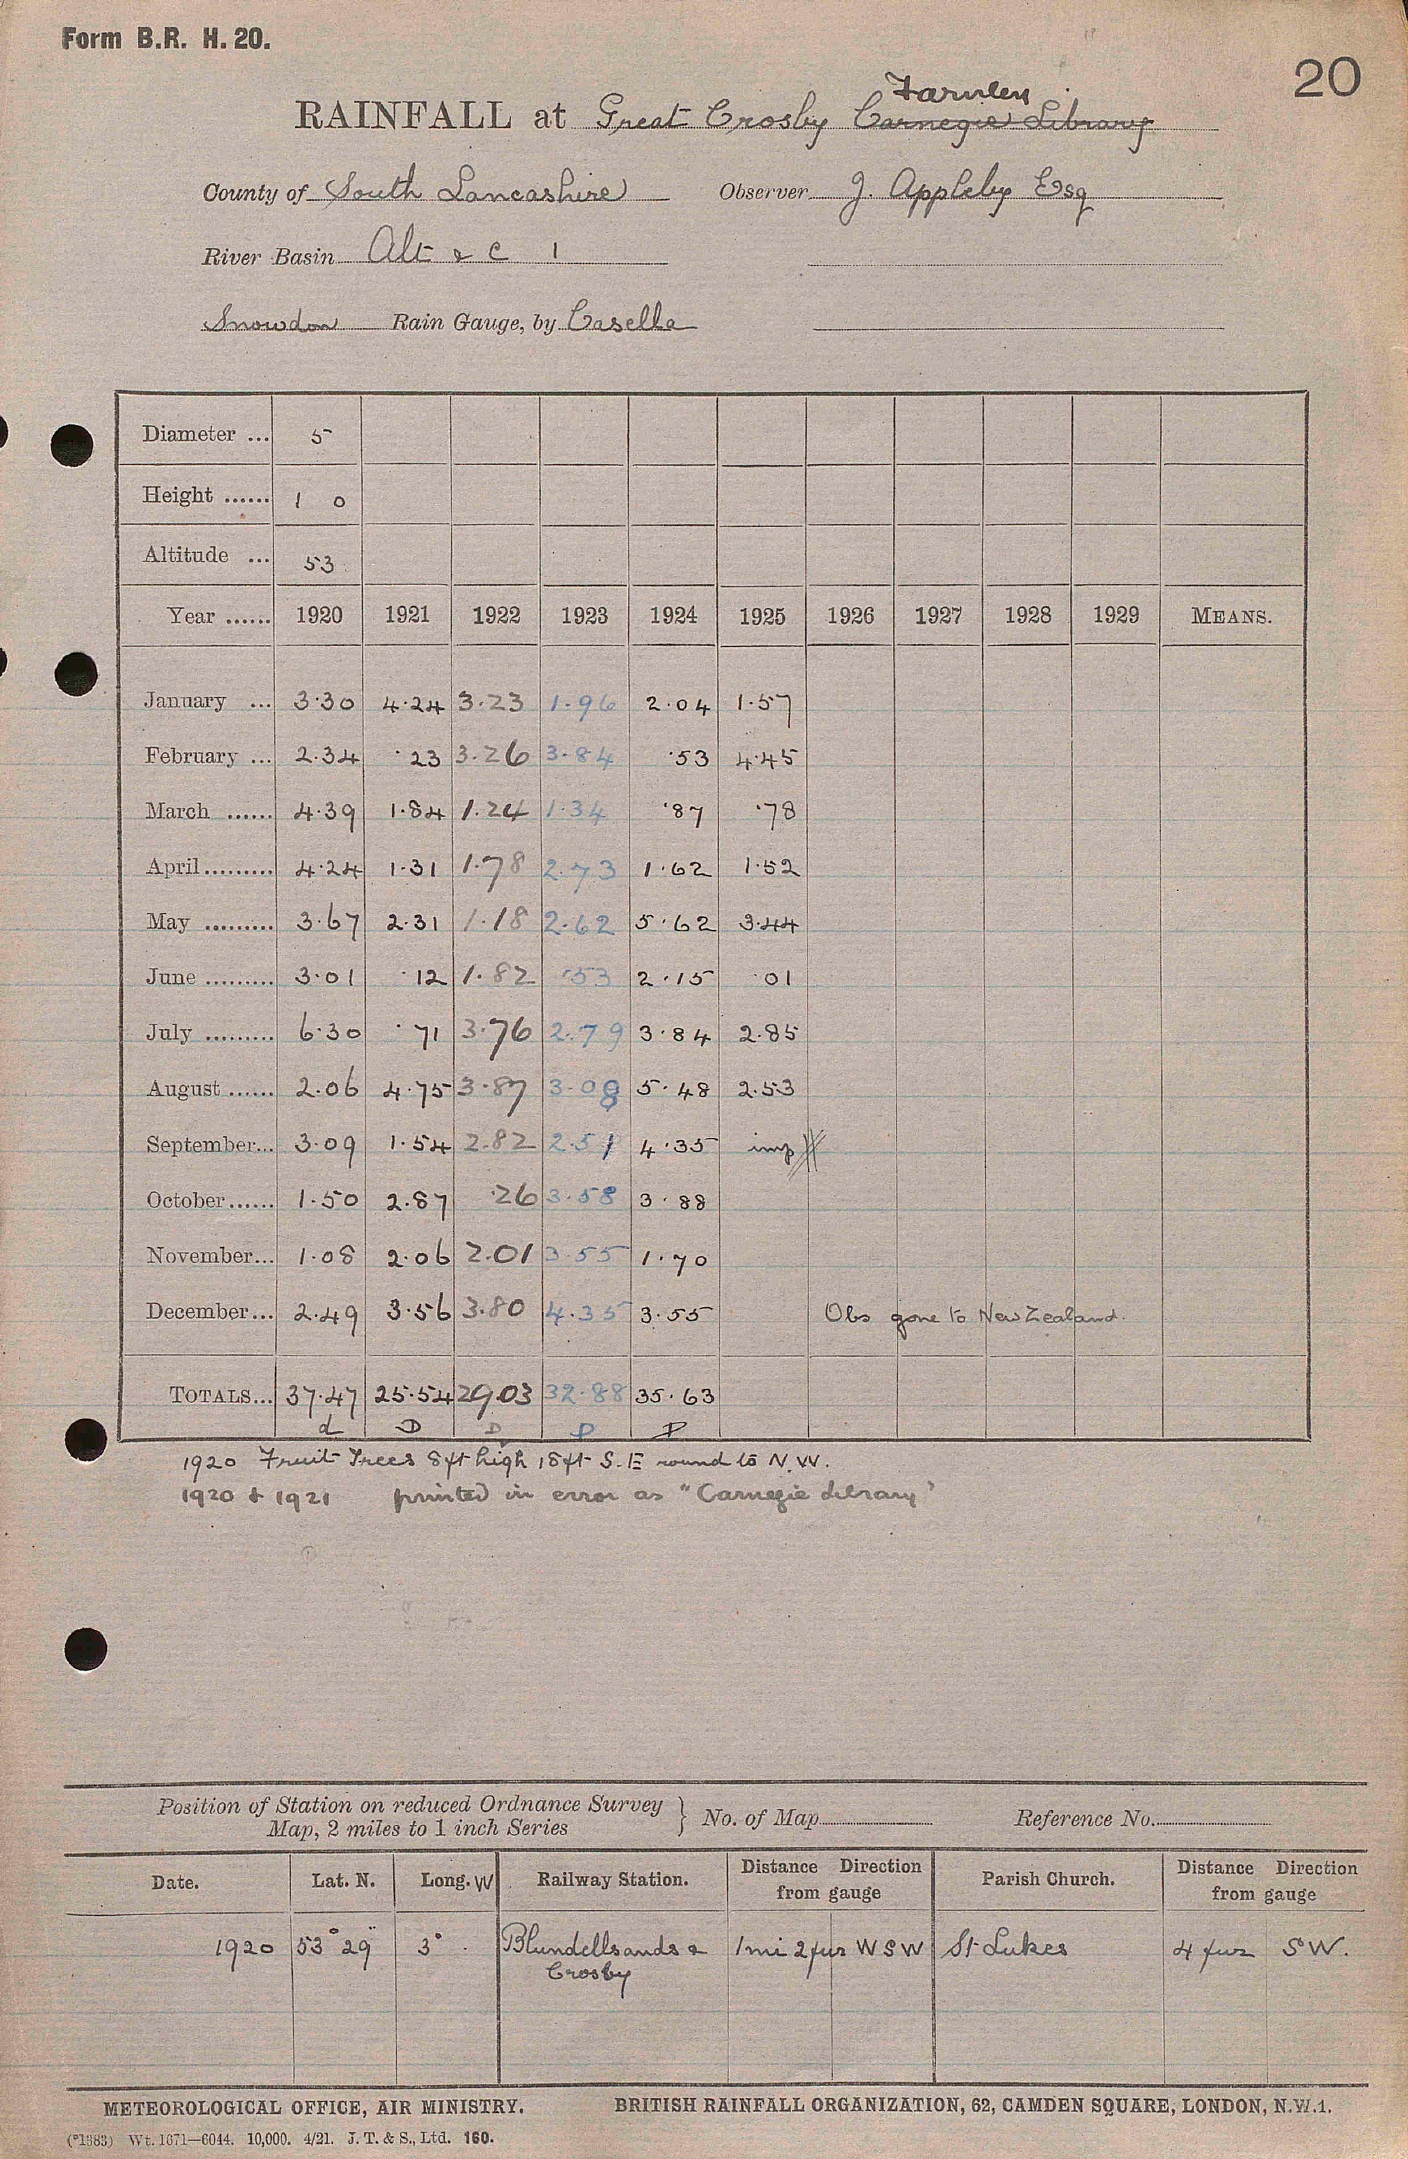 Form B.R. H. 20.
20
Farnley
RAINFALL at Great Crosby Carnegie Library
County of South Lancashire Observer J. Appleby Esq
River Basin Alt & C 1
Snowdon Rain Gauge, by Casella
Diameter ... 5
Height ...... 1 0
Altitude ... 53
Year ...... 1920 1921 1922 1923 1924 1925 1926 1927 1928 1929 MEANS.
January ... 3.30 4.24 3.23 1.96 2.04 1.57
February ... 2.34 .23 3.26 3.84 .53 4.45
March ...... 4.39 1.84 1.24 1.34 .87 .78
April ......... 4.24 1.31 1.78 2.73 1.62 1.52
May ......... 3.67 2.31 1.18 2.62 5.62 3.44
June ......... 3.01 .12 1.82 .53 2.15 .01
July ......... 6.30 .71 3.76 2.79 3.84 2.85
August ...... 2.06 4.75 3.87 3.08 5.48 2.53
September... 3.09 1.54 2.82 2.51 4.35 imp
October...... 1.50 2.87 .26 3.58 3.88
November... 1.08 2.06 2.01 3.55 1.70
December... 2.49 3.56 3.80 4.35 3.55 Obs gone to New Zealand.
TOTALS... 37.47 25.54 29.03 32.88 35.63
d D D P P
1920 Fruit Trees 8ft high 18ft S.E round to N.W.
1920 & 1921 printed in error as "Carnegie Library"
Position of Station on reduced Ordnance Survey
Map, 2 miles to 1 inch Series } No. of Map Reference No.
Date. Lat. N. Long. W Railway Station. Distance Direction from gauge Parish Church. Distance Direction from gauge
1920 53° 29" 3° Blundellsands & 1 mi 2 fur W S W St Lukes 4 fur S W.
Crosby
METEOROLOGICAL OFFICE, AIR MINISTRY. BRITISH RAINFALL ORGANIZATION, 62, CAMDEN SQUARE, LONDON, N.W.1.
(*1383) Wt. 1671—6044. 10,000. 4/21. J. T. & S., Ltd. 160.